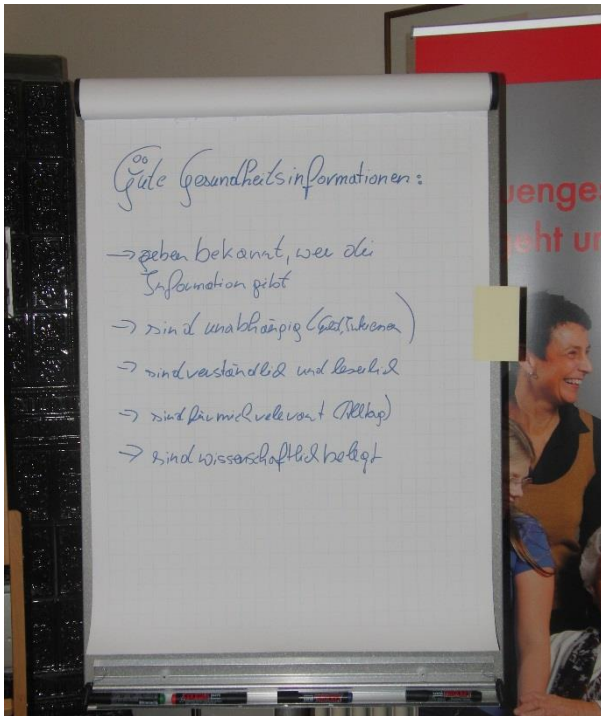 Gute Gesundheitsinformationen:
→ geben bekannt, wer die
Information gibt
→ sind unabhängig (Geld, Interessen)
→ sind verständlich und leserlich
→ sind für mich relevant (Alltag)
→ sind wissenschaftlich belegt
uenges
geht un